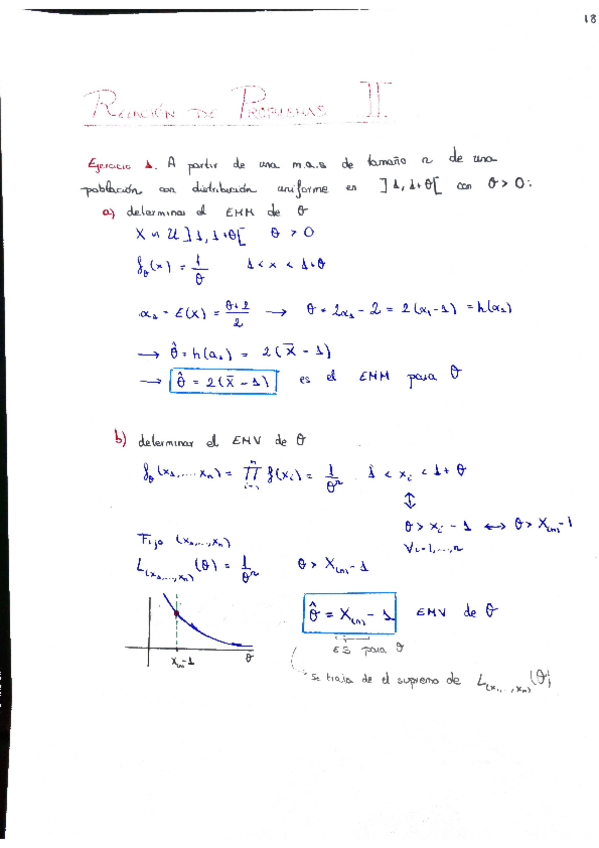 18
RELACIÓN DE PROBLEMAS II
Ejercicio 1. A partir de una m.a.s de tamaño n de una
población con distribución uniforme en ]1, 1+θ[ con θ>0:
a) determinar el EMM de θ
X ~ U ]1, 1+θ[ θ > 0
f_θ(x) = 1/θ 1 < x < 1+θ
α₁ = E(X) = (θ+2)/2 → θ = 2α₁ - 2 = 2(α₁-1) = h(α₁)
→ θ̂ = h(a₁) = 2(X̄ - 1)
→ θ̂ = 2(X̄ - 1) es el EMM para θ
b) determinar el EMV de θ
f_θ(x₁,...,xₙ) = ∏ᵢ₌₁ⁿ f(xᵢ) = 1/θⁿ 1 < xᵢ < 1+θ
↕
θ > xᵢ - 1 ↔ θ > X₍ₙ₎-1
∀i=1,...,n
Fijo (x₁,...,xₙ)
L₍ₓ₁,...,ₓₙ₎(θ) = 1/θⁿ θ > X₍ₙ₎-1
θ̂ = X₍ₙ₎ - 1 EMV de θ
ES para θ
X₍ₙ₎-1 θ
Se trata de el supremo de L₍ₓ₁,...,ₓₙ₎(θ)